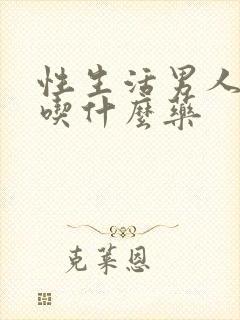 性生活男人
喫什麼藥
克萊恩